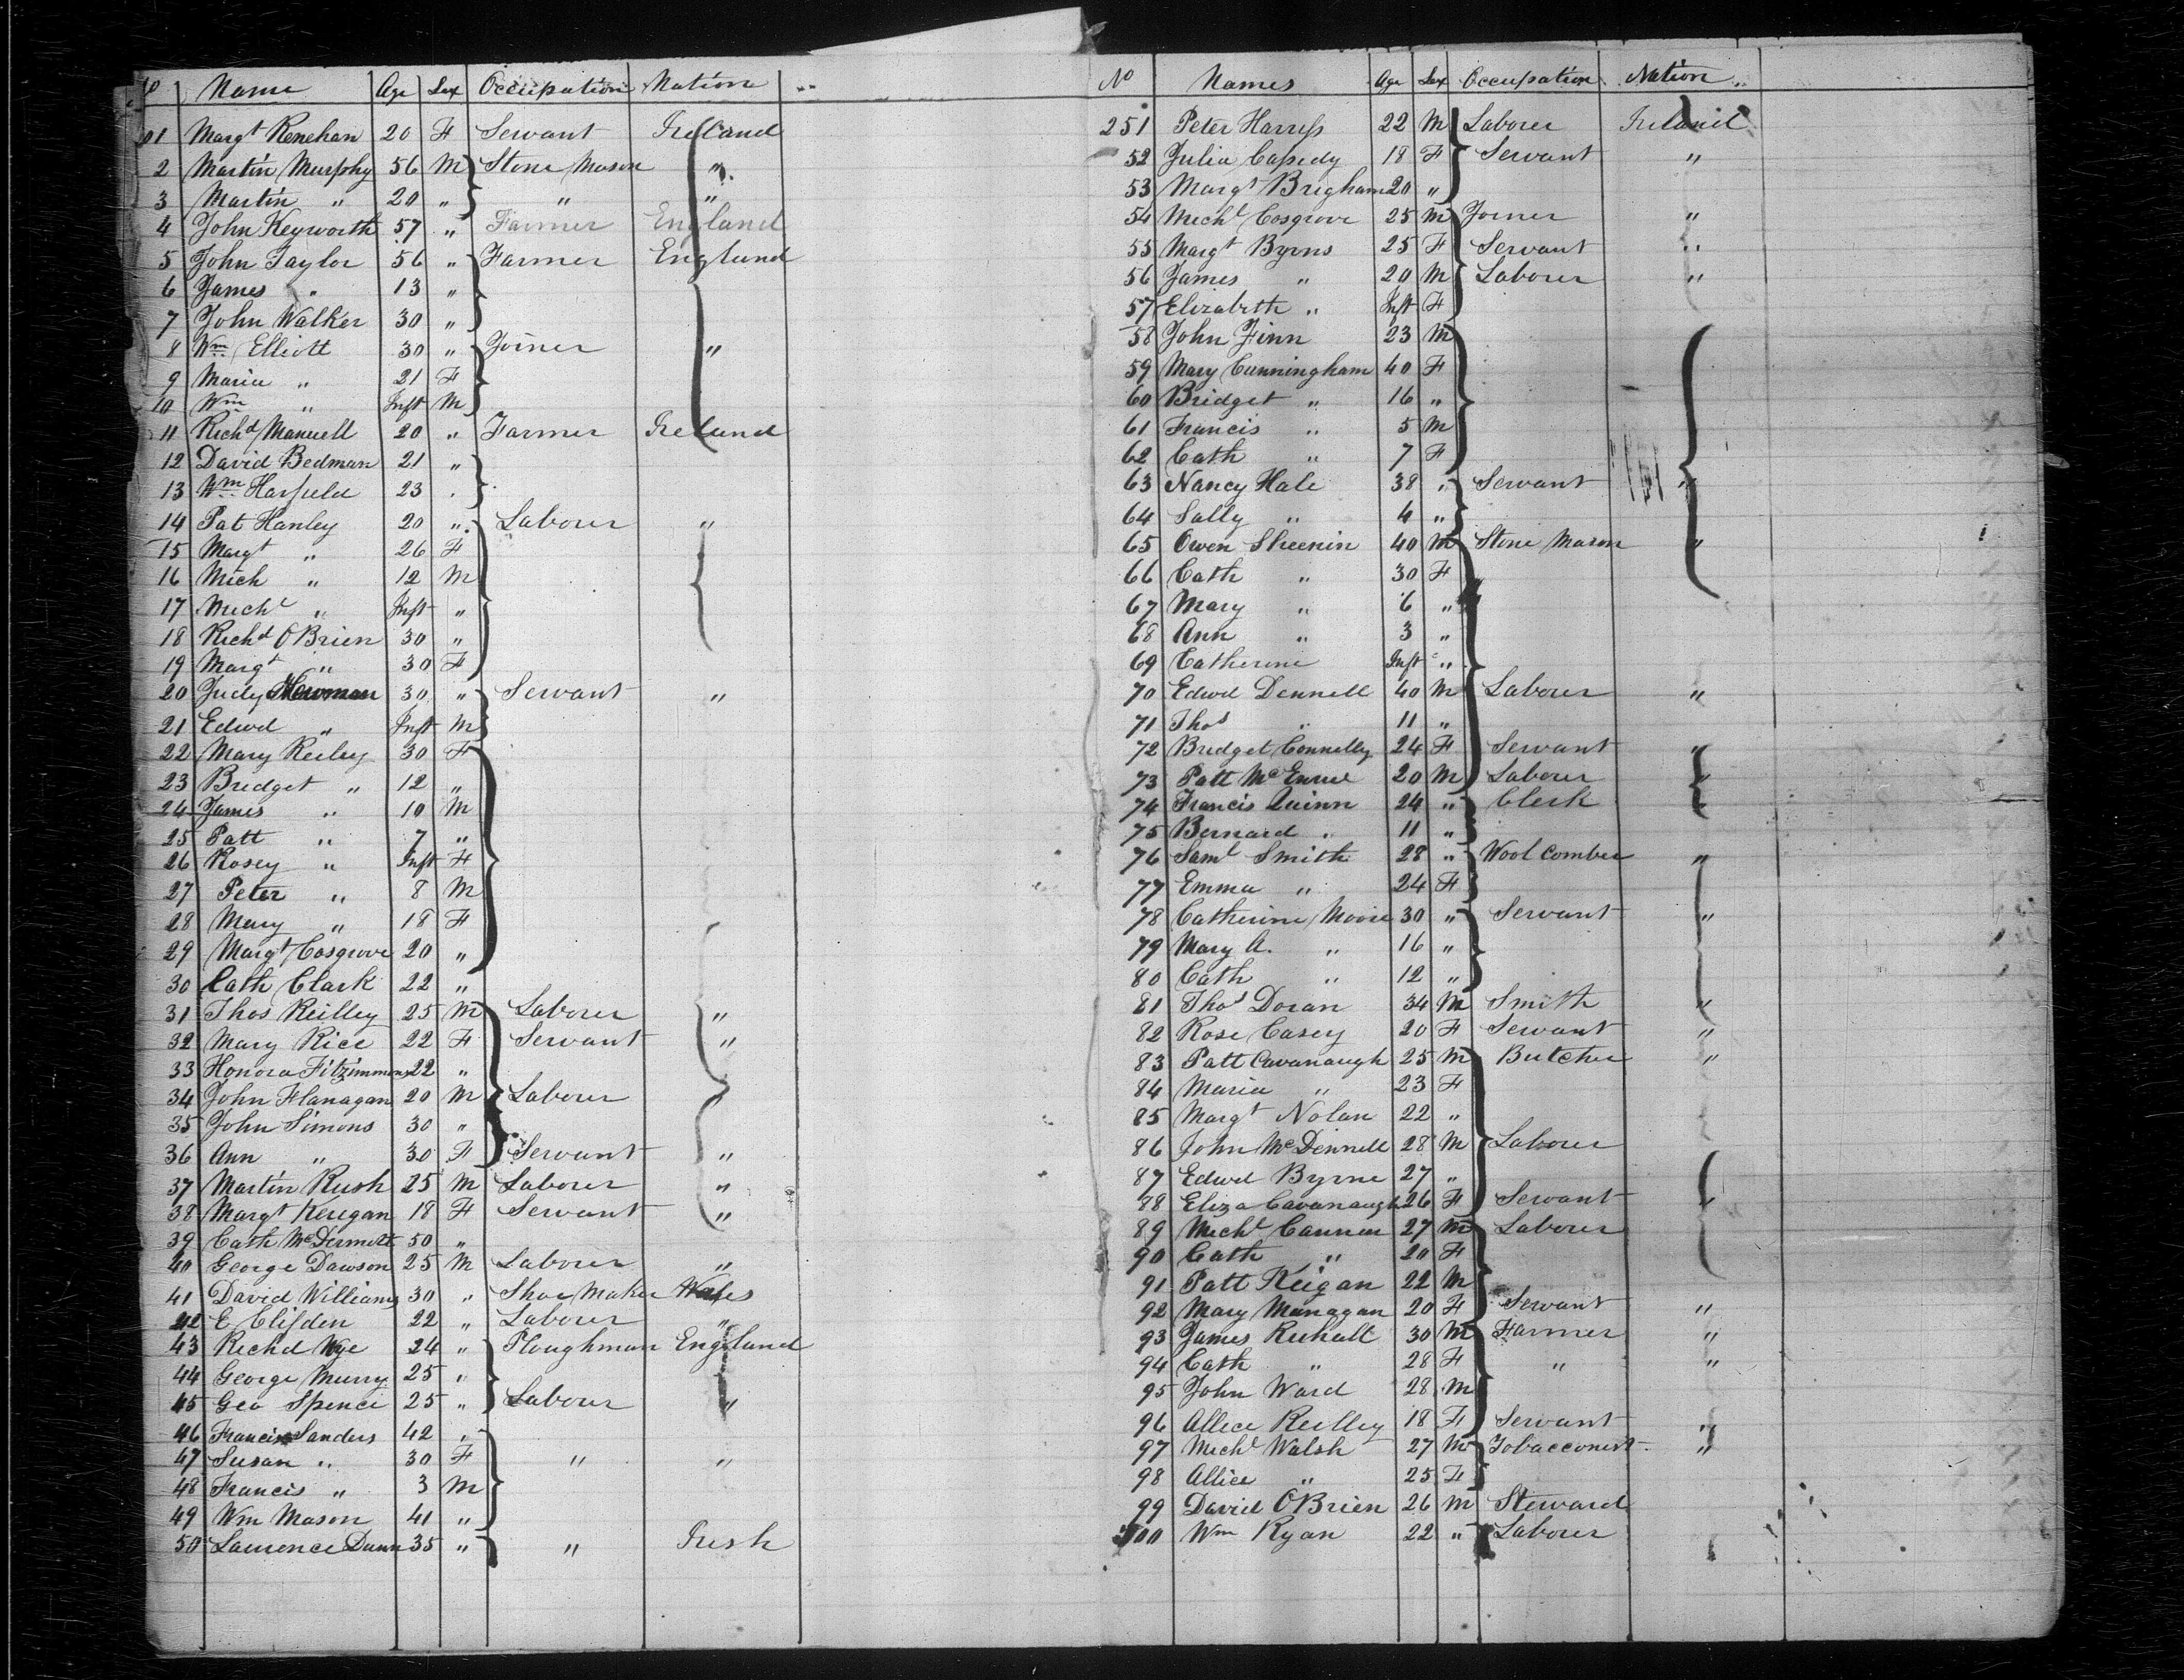 Name Age Sex Occupation Nation
01 Margt Renehan 20 F Servant Ireland
2 Martin Murphy 56 M Stone Mason "
3 Martin " 20 " " "
4 John Keyworth 57 " Farmer England
5 John Taylor 56 " Farmer England
6 James " 13 "
7 John Walker 30 "
8 Wm Elliott 30 " Joiner "
9 Maria " 21 F
10 Wm " Inft M
11 Richd Manuell 20 " Farmer Ireland
12 David Bedman 21 "
13 Wm Harfield 23 "
14 Pat Hanley 20 " Laborer "
15 Margt " 26 F
16 Mich " 12 M
17 Michl " Inft "
18 Richd OBrien 30 "
19 Margt " 30 F
20 Judy Newman 30 " Servant "
21 Edwd " Inft M
22 Mary Reiley 30 F
23 Bridget " 12 "
24 James " 10 M
25 Patt " 7 "
26 Rosey " Inft F
27 Peter " 8 M
28 Mary " 18 F
29 Margt Cosgrove 20 "
30 Cath Clark 22 "
31 Thos Reilley 25 M Laborer "
32 Mary Rice 22 F Servant "
33 Honora Fitzimmons 22 "
34 John Flanagan 20 M Laborer "
35 John Simons 30 "
36 Ann " 30 F Servant "
37 Martin Rush 25 M Laborer "
38 Margt Kerigan 18 F Servant "
39 Cath McDermott 50 "
40 George Dawson 25 M Laborer "
41 David Williams 30 " Shoe Maker Wales
42 E Clifden 22 " Laborer "
43 Richd Wye 24 " Ploughman England
44 George Murry 25 "
45 Geo Spence 25 " Laborer "
46 Francis Sanders 42 "
47 Susan " 30 F " "
48 Francis " 3 M
49 Wm Mason 41 "
50 Laurence Dunn 35 " " Irish
No Names Age Sex Occupation Nation
251 Peter Harriss 22 M Laborer Ireland
52 Julia Cassedy 18 F Servant "
53 Margt Brigham 20 "
54 Michl Cosgrove 25 M Joiner "
55 Margt Byrns 25 F Servant "
56 James " 20 M Laborer "
57 Elizabeth " Inft F
58 John Finn 23 M
59 Mary Cunningham 40 F
60 Bridget " 16 "
61 Francis " 5 M
62 Cath " 7 F
63 Nancy Hale 38 " Servant "
64 Sally " 4 "
65 Owen Sheenin 40 M Stone Mason "
66 Cath " 30 F
67 Mary " 6 "
68 Ann " 3 "
69 Catherine Inft "
70 Edwd Dennell 40 M Laborer "
71 Thos " 11 "
72 Bridget Connelly 24 F Servant "
73 Patt McEnroe 20 M Laborer "
74 Francis Quinn 24 " Clerk
75 Bernard " 11 "
76 Saml Smith 28 " Wool Comber "
77 Emma " 24 F
78 Catherine Moore 30 " Servant "
79 Mary A. " 16 "
80 Cath " 12 "
81 Thos Doran 34 M Smith "
82 Rose Casey 20 F Servant "
83 Patt Cavanaugh 25 M Butcher "
84 Maria " 23 F
85 Margt Nolan 22 "
86 John McDennell 28 M Laborer
87 Edwd Byrne 27 "
88 Eliza Cavanaugh 26 F Servant "
89 Michl Cannon 27 M Laborer
90 Cath " 20 F
91 Patt Keigan 22 M
92 Mary Managan 20 F Servant "
93 James Ruhall 30 M Farmer "
94 Cath " 28 F " "
95 John Ward 28 M
96 Allice Reilley 18 F Servant "
97 Michl Walsh 27 M Tobacconist "
98 Allice " 25 F
99 David OBrien 26 M Steward
300 Wm Ryan 22 " Laborer